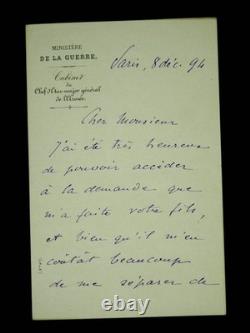 MINISTÈRE
DE LA GUERRE.
Cabinet
du
Chef d'État-major général
de l'Armée
Paris, 8 déc. 94
Cher Monsieur
J'ai été très heureux
de pouvoir accéder
à la demande que
m'a faite votre fils,
et bien qu'il m'en
coûtât beaucoup
de me séparer de
ebay